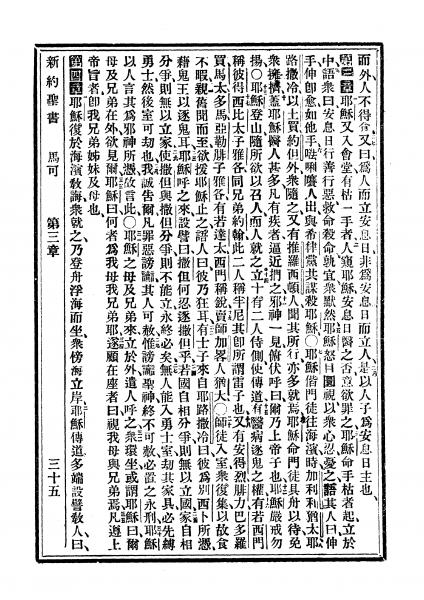 而外人不得食、又曰、爲人而立安息日、非爲安息日而立人、是以人子爲安息日主也、
第三章 耶穌又入會堂、有枯一手者、人窺耶穌安息日醫之否、意欲罪之、耶穌命手枯者起立於
中、語衆曰、安息日行善行惡、救命殺命、孰宜、衆默然、耶穌怒目圜視、以衆心忍、憂之、語其人曰、伸
手、伸卽愈、如他手、唎嚷人出、與希律黨共謀殺耶穌、〇耶穌偕門徒往海濱、時加利利、猶太、耶
路撒冷、以土買、約但外、衆隨之、又有推羅西頓人、聞其所行、亦多就焉、耶穌命門徒具舟以待、免
衆擁擠、蓋耶穌醫人甚多、凡有疾者、逼近捫之、邪神一見、俯伏呼曰、爾乃上帝子也、耶穌嚴戒勿
揚、〇耶穌登山、隨所欲以召人、而人就之、立十有二人侍側、使傳道、有醫病逐鬼之權、有若西門
稱彼得、西比太子雅各、同兄弟約翰、此二人稱半尼其、卽所謂雷子也、又有安得烈、腓力、巴多羅
買、馬太、多馬、亞勒腓子雅各、有若達太、西門稱銳、賣師加畧人猶大、〇師徒入室、衆復集、以故食
不暇、親舊聞而至、欲援耶穌止之、語人曰、彼乃狂耳、有士子來自耶路撒冷、曰、彼爲別西卜所憑、
藉鬼王以逐鬼耳、耶穌呼之來、設譬曰、撒但何忍逐撒但乎、若國自相分爭、則無以立國、家自相
分爭、則無以立家、使撒但與撒但分爭、則不能立、永終必矣、無人能入勇士室、刧其家具、必先縛
勇士、然後室可刧也、我誠告爾、凡罪惡謗讟、其人可赦、惟謗讟聖神、終不可赦、必置之永刑、耶穌
以人言其爲邪神所憑、故言此、〇耶穌之母及兄弟來、立於外、遣人呼之、衆環坐、或謂耶穌曰、爾
母及兄弟在外、欲見爾、耶穌曰、何者爲我母我兄弟耶、遂顧在座者曰、視我母與兄弟焉、凡遵上
帝旨者、卽我兄弟姊妹及母也、
第四章 耶穌復於海濱敎誨、衆就之、乃登舟浮海而坐、衆傍海立岸、耶穌傳道多端、設譬敎人曰、
新約聖書 馬可 第三章 三十五